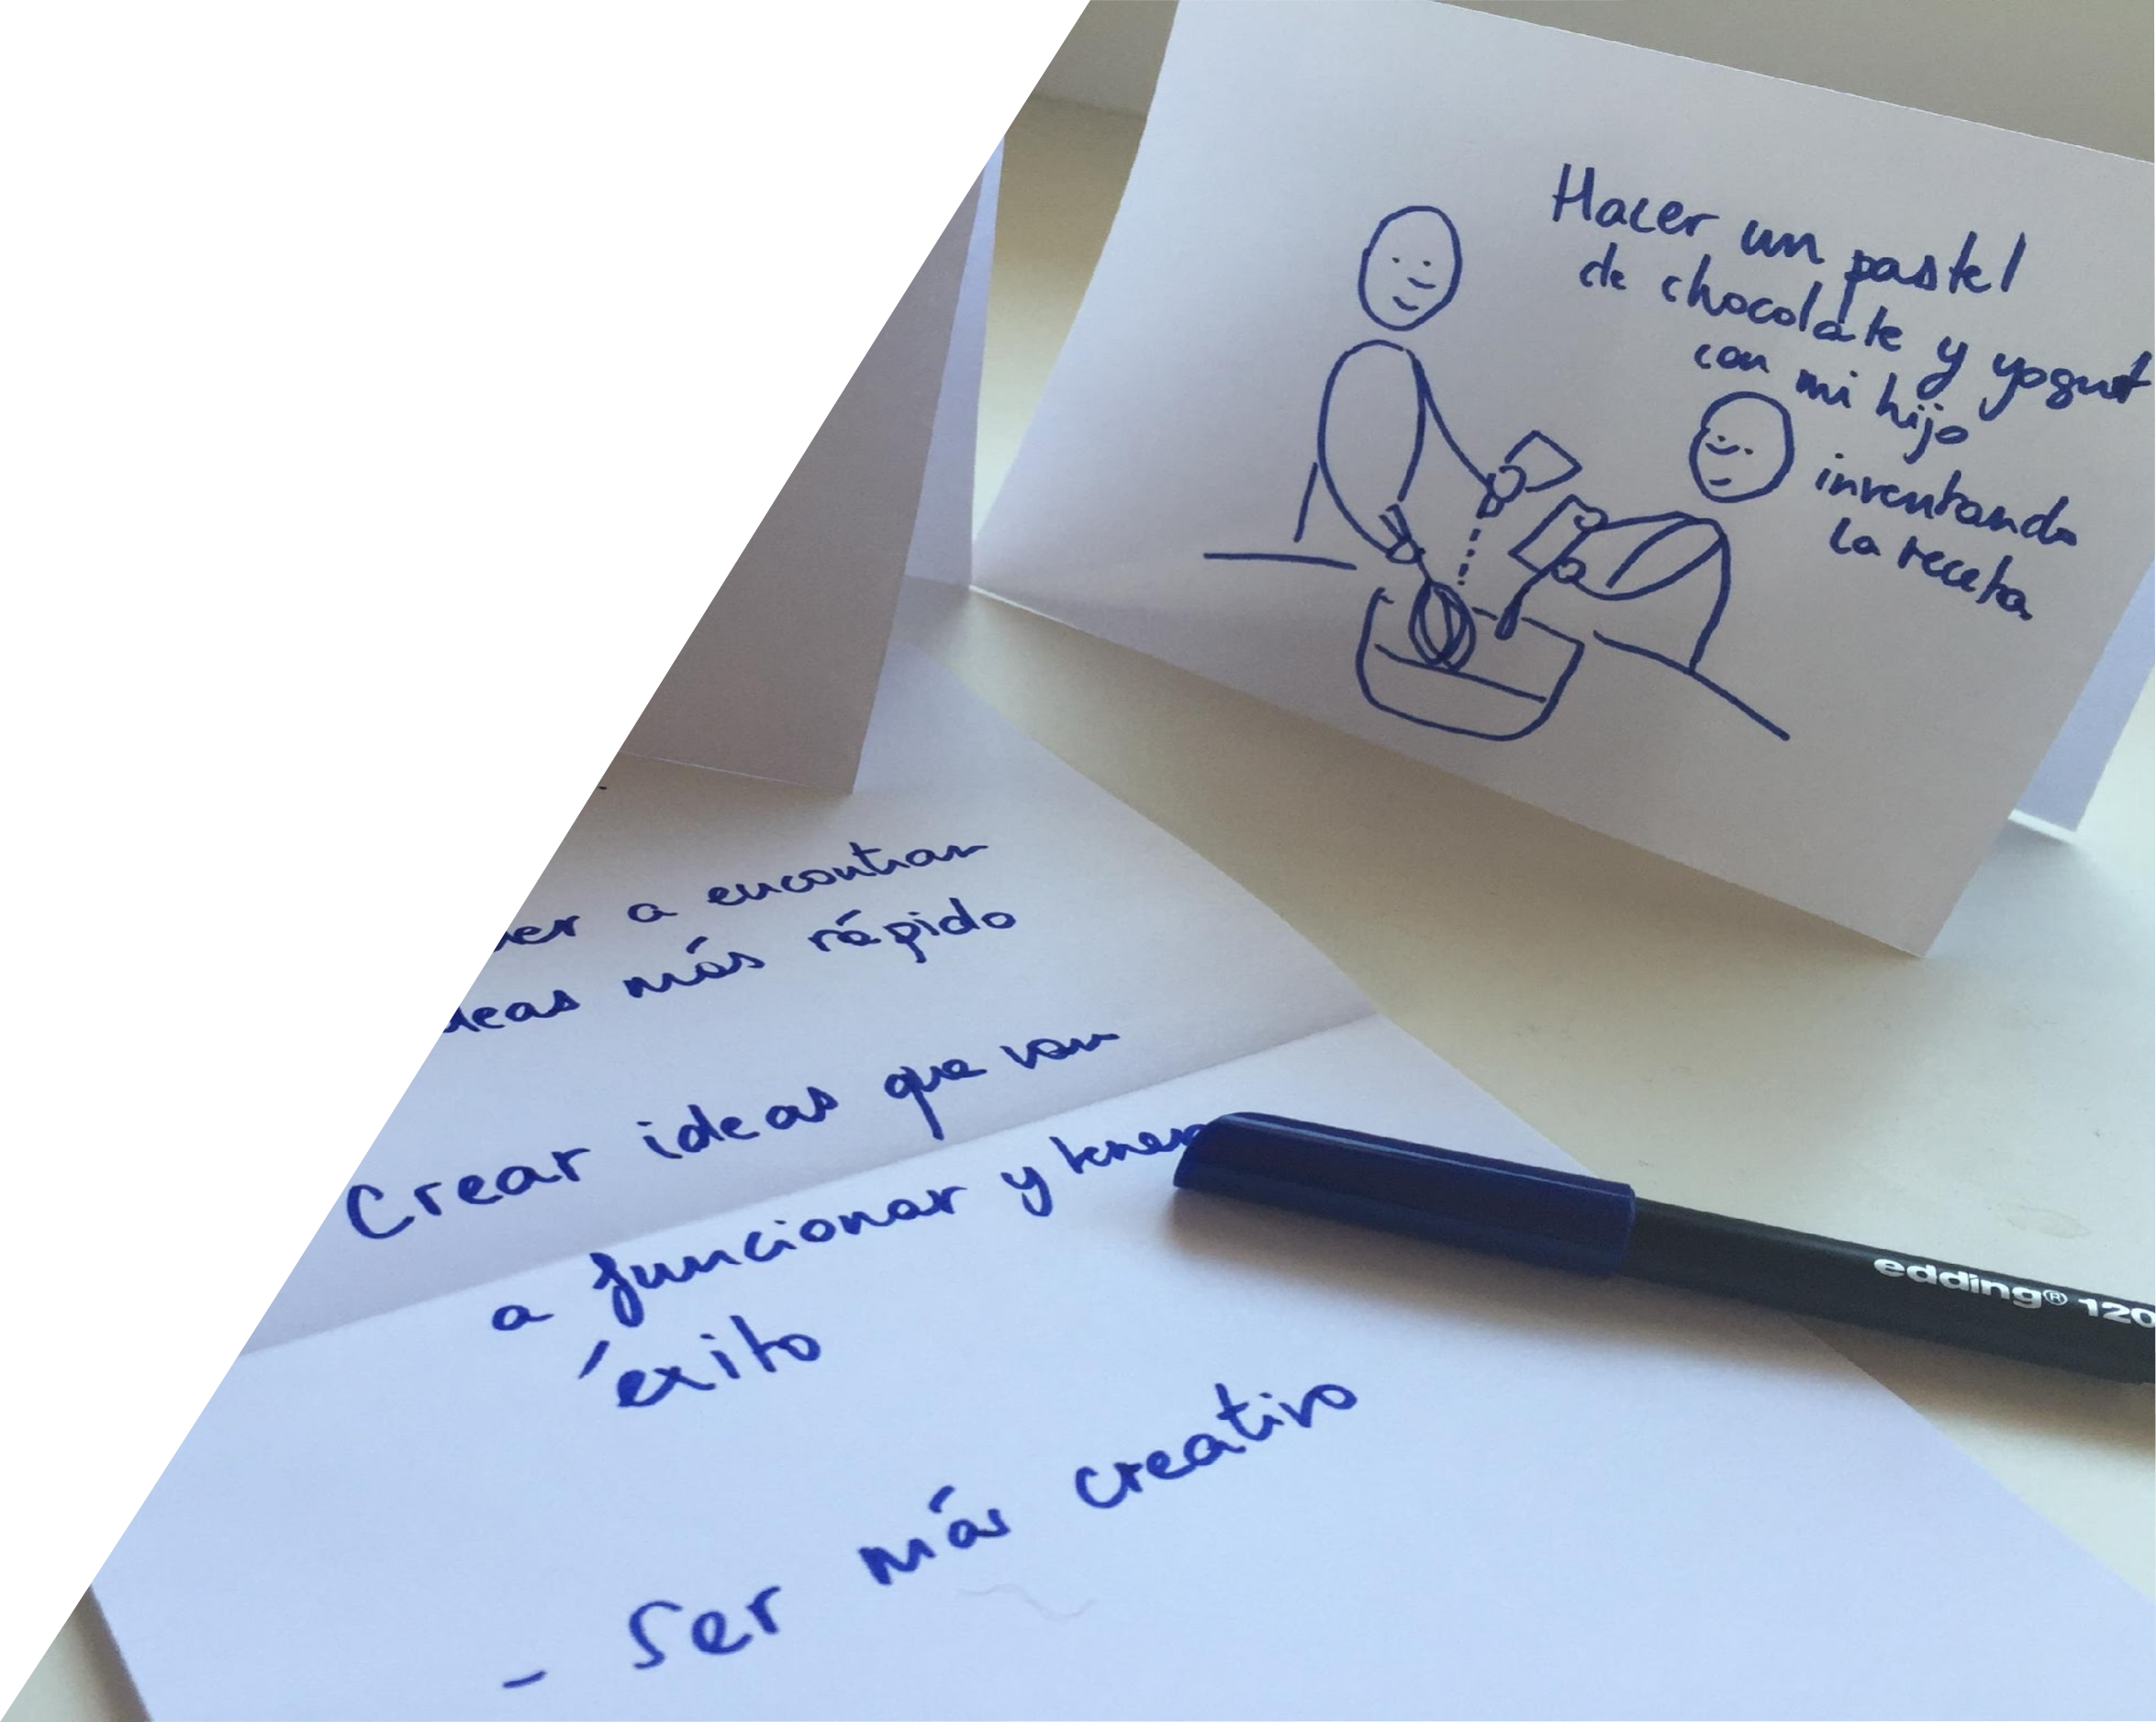 Hacer un pastel
de chocolate y yogurt
con mi hijo
inventando
la receta
a encontrar
más rápido
Crear ideas que van
a funcionar y tener
éxito
- Ser más creativo
edding® 120